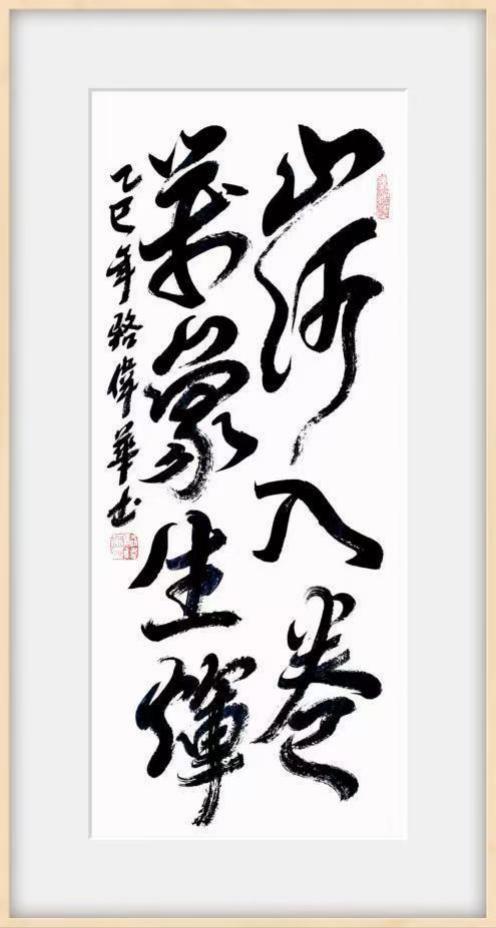 山河入卷
萬象生輝
乙巳年駱偉華书